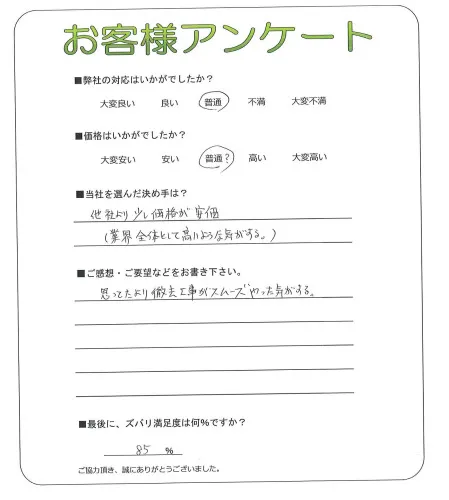 お客様アンケート
■弊社の対応はいかがでしたか？
大変良い 良い 普通 不満 大変不満
■価格はいかがでしたか？
大変安い 安い 普通？ 高い 大変高い
■当社を選んだ決め手は？
他社より少し価格が安価
(業界全体として高いような気がする。)
■ご感想・ご要望などをお書き下さい。
思ってたより撤去工事がスムーズやった気がする。
■最後に、ズバリ満足度は何％ですか？
85 %
ご協力頂き、誠にありがとうございました。